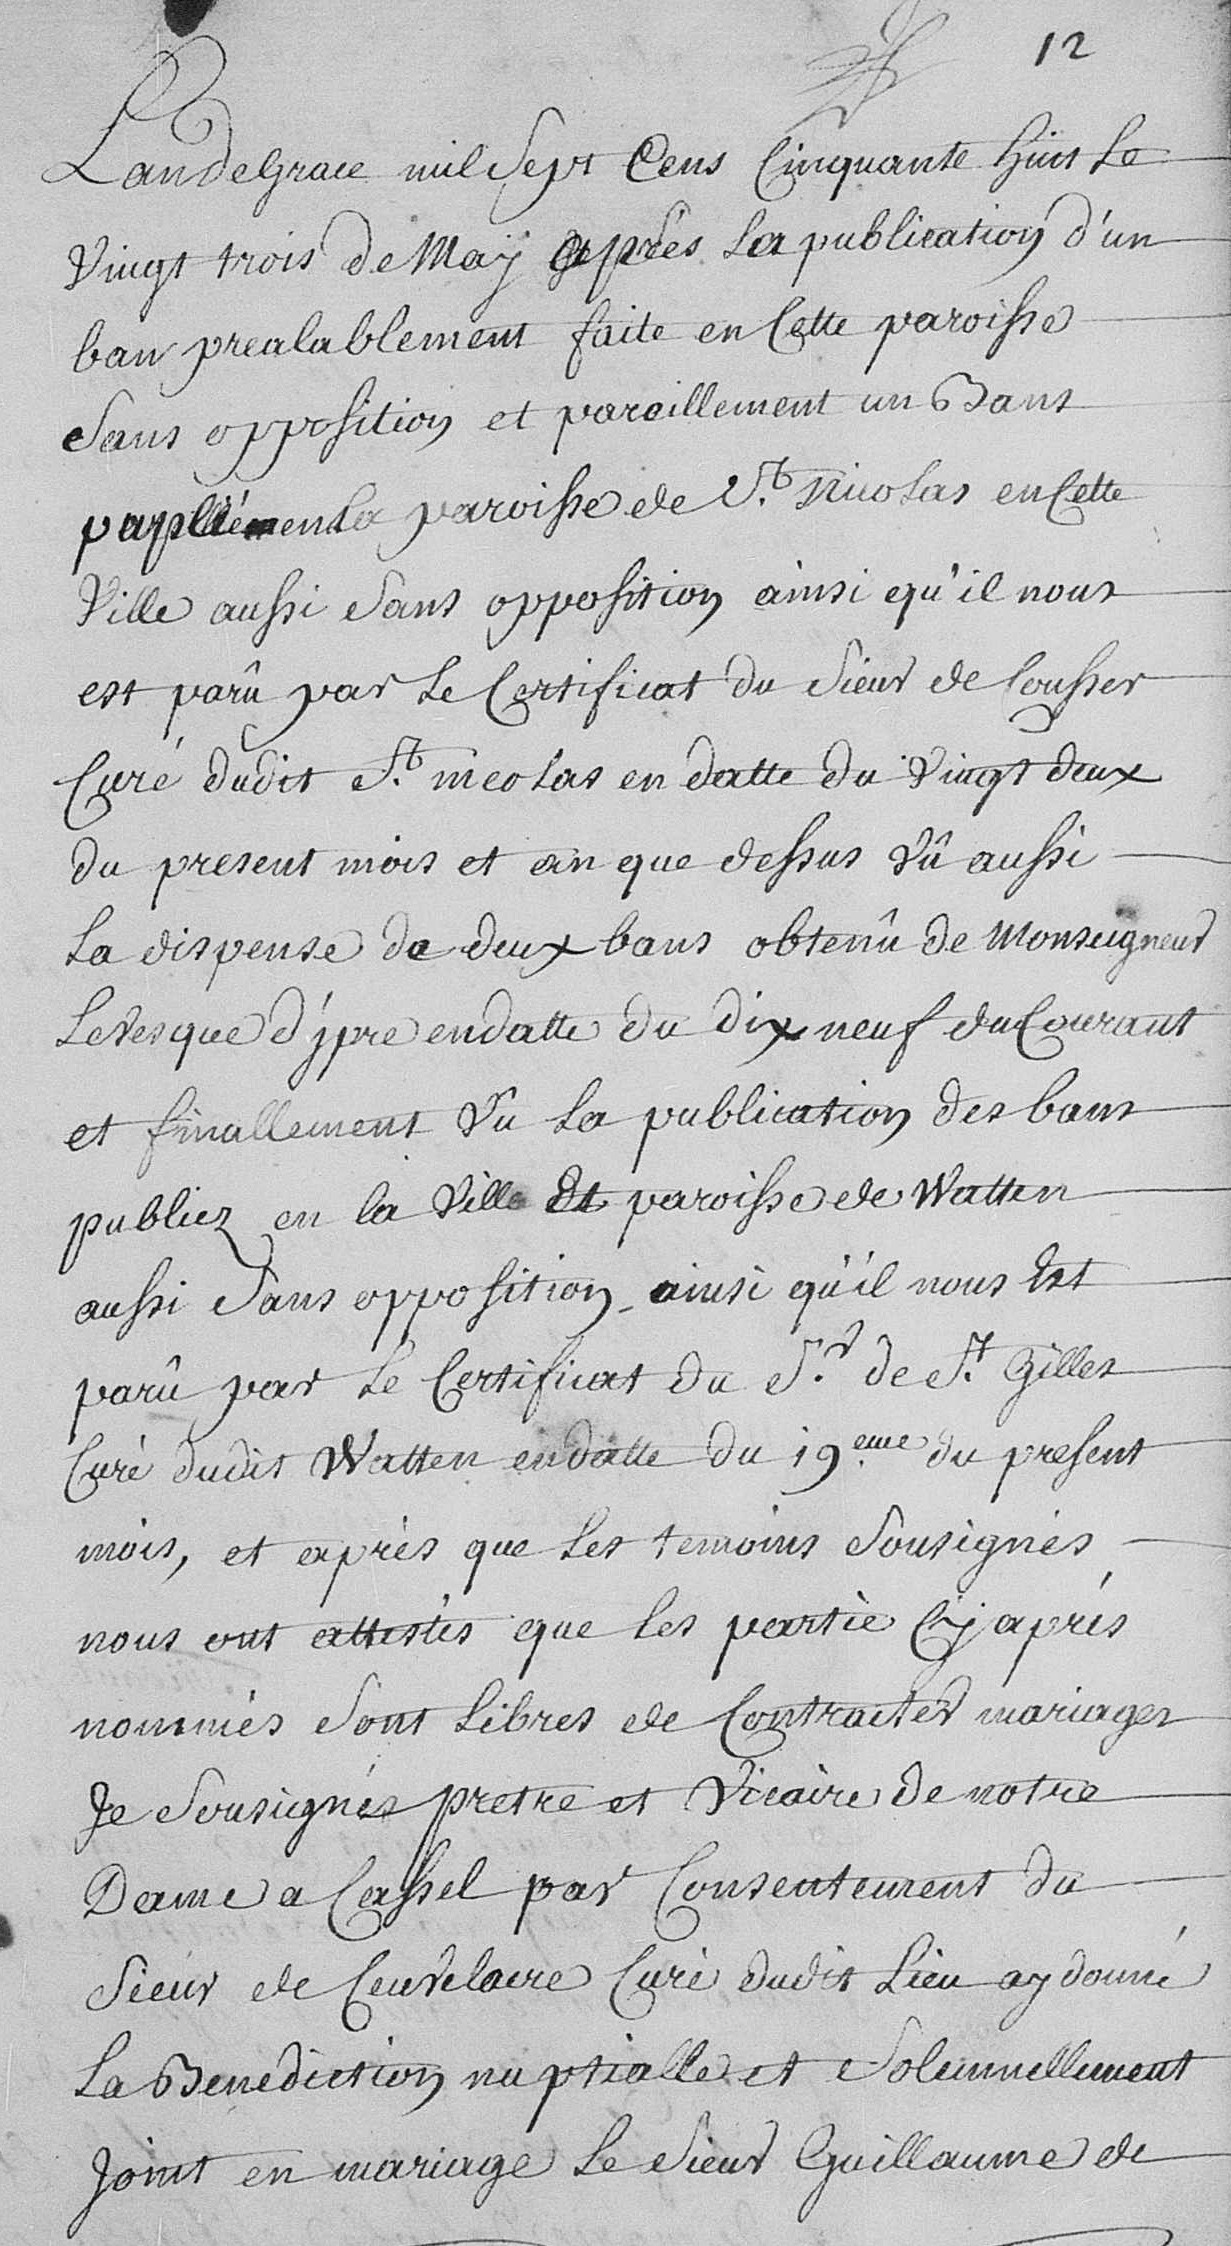 12
Landegrace mil Sept Cens Cinquante huit Le
Vingt trois de Maÿ après La publication d'un
ban prealablement faite en Cette paroisse
Sans opposition et pareillement un Bans
en La paroisse de St. Nicolas en Cette
Ville aussi Sans opposition ainsi qu'il nous
est parû par Le Certificat du Sieur de Cousser
Curé dudit St. nicolas en datte du Vingt deux
du present mois et an que dessus Vû aussi
La dispense de deux bans obtenû de Monseigneur
Levesque d'ÿpre endatte du dix neuf du Courant
et finallement Vu La publication des bans
publiez en la Ville Et paroisse de Watten
aussi Sans opposition ainsi qu'il nous Est
parû par Le Certificat du Sr. de St. Gilles
Curé dudit Watten endatte du 19.eme du present
mois, et après que Les temoins Sousignés
nous ont attestés que Les partie Cÿ aprés
nommés Sont Libres de Contracter mariages
Je Sousignés pretre et Vicaire de notre
Dame a Cassel par Consentement du
Sieur de Ceuvelaere Curé dudit Lieu ay donné
La Benediction nuptialle et Solemnellement
Joint en mariage Le Sieur Guillaume de